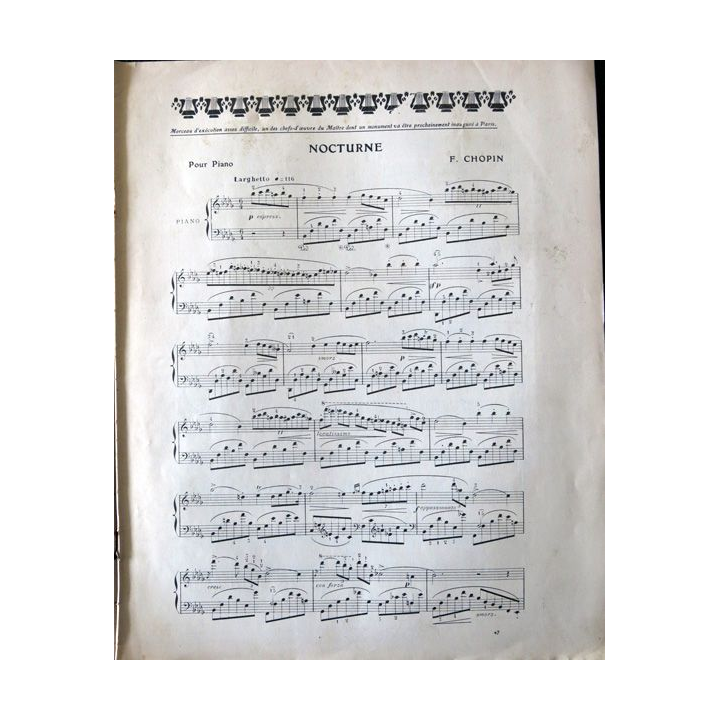 Morceau d'exécution assez difficile, un des chefs-d'œuvre du Maître dont un monument va être prochainement inauguré à Paris.
NOCTURNE
Pour Piano
F. CHOPIN
Larghetto ♩=116
PIANO
p espress.
smorz.
p
con forza
p
smorz.
47